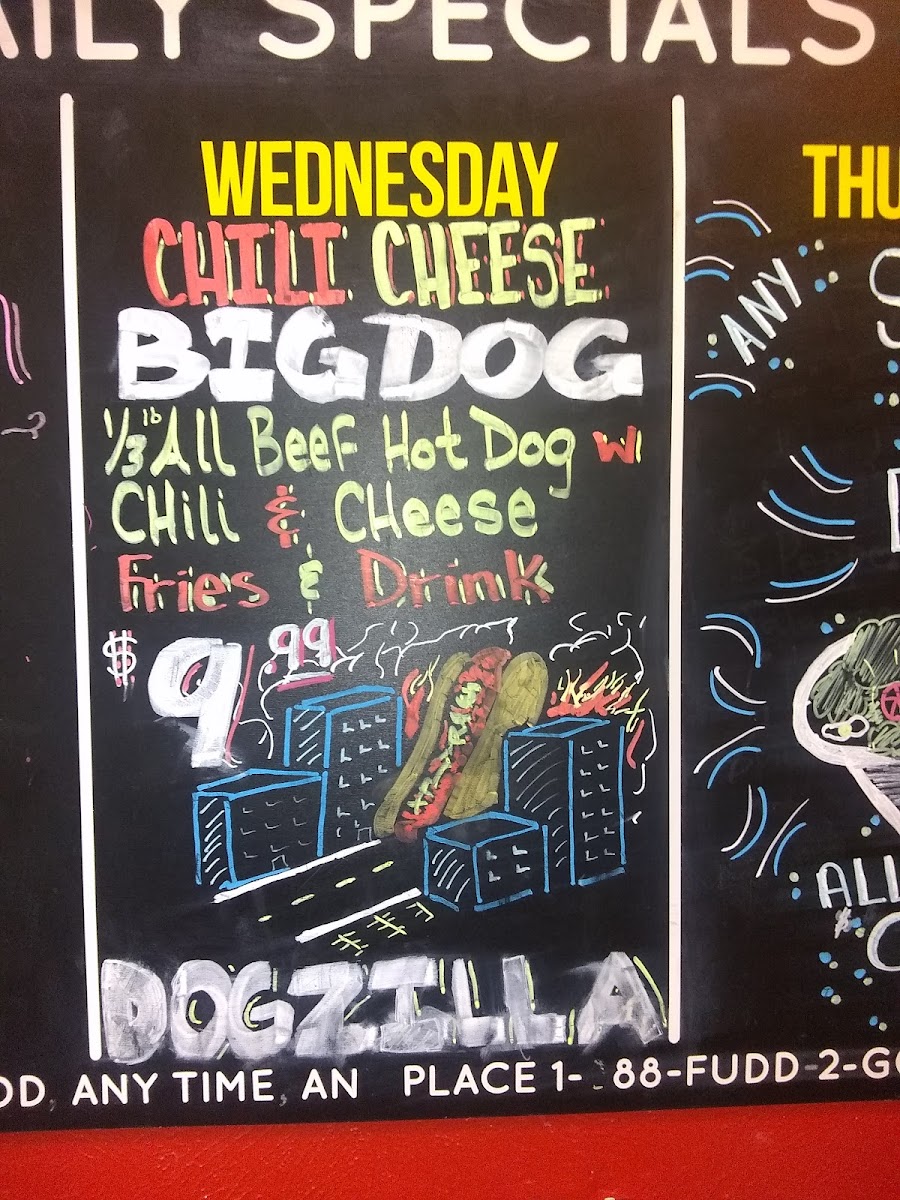 AILY SPECIALS
WEDNESDAY
CHILI CHEESE
BIG DOG
1/3 lb All Beef Hot Dog w/
CHili & CHeese
Fries & Drink
$9.99
DOGZILLA
THU
ANY
ALL
$
OD ANY TIME AN PLACE 1- 88-FUDD-2-GO